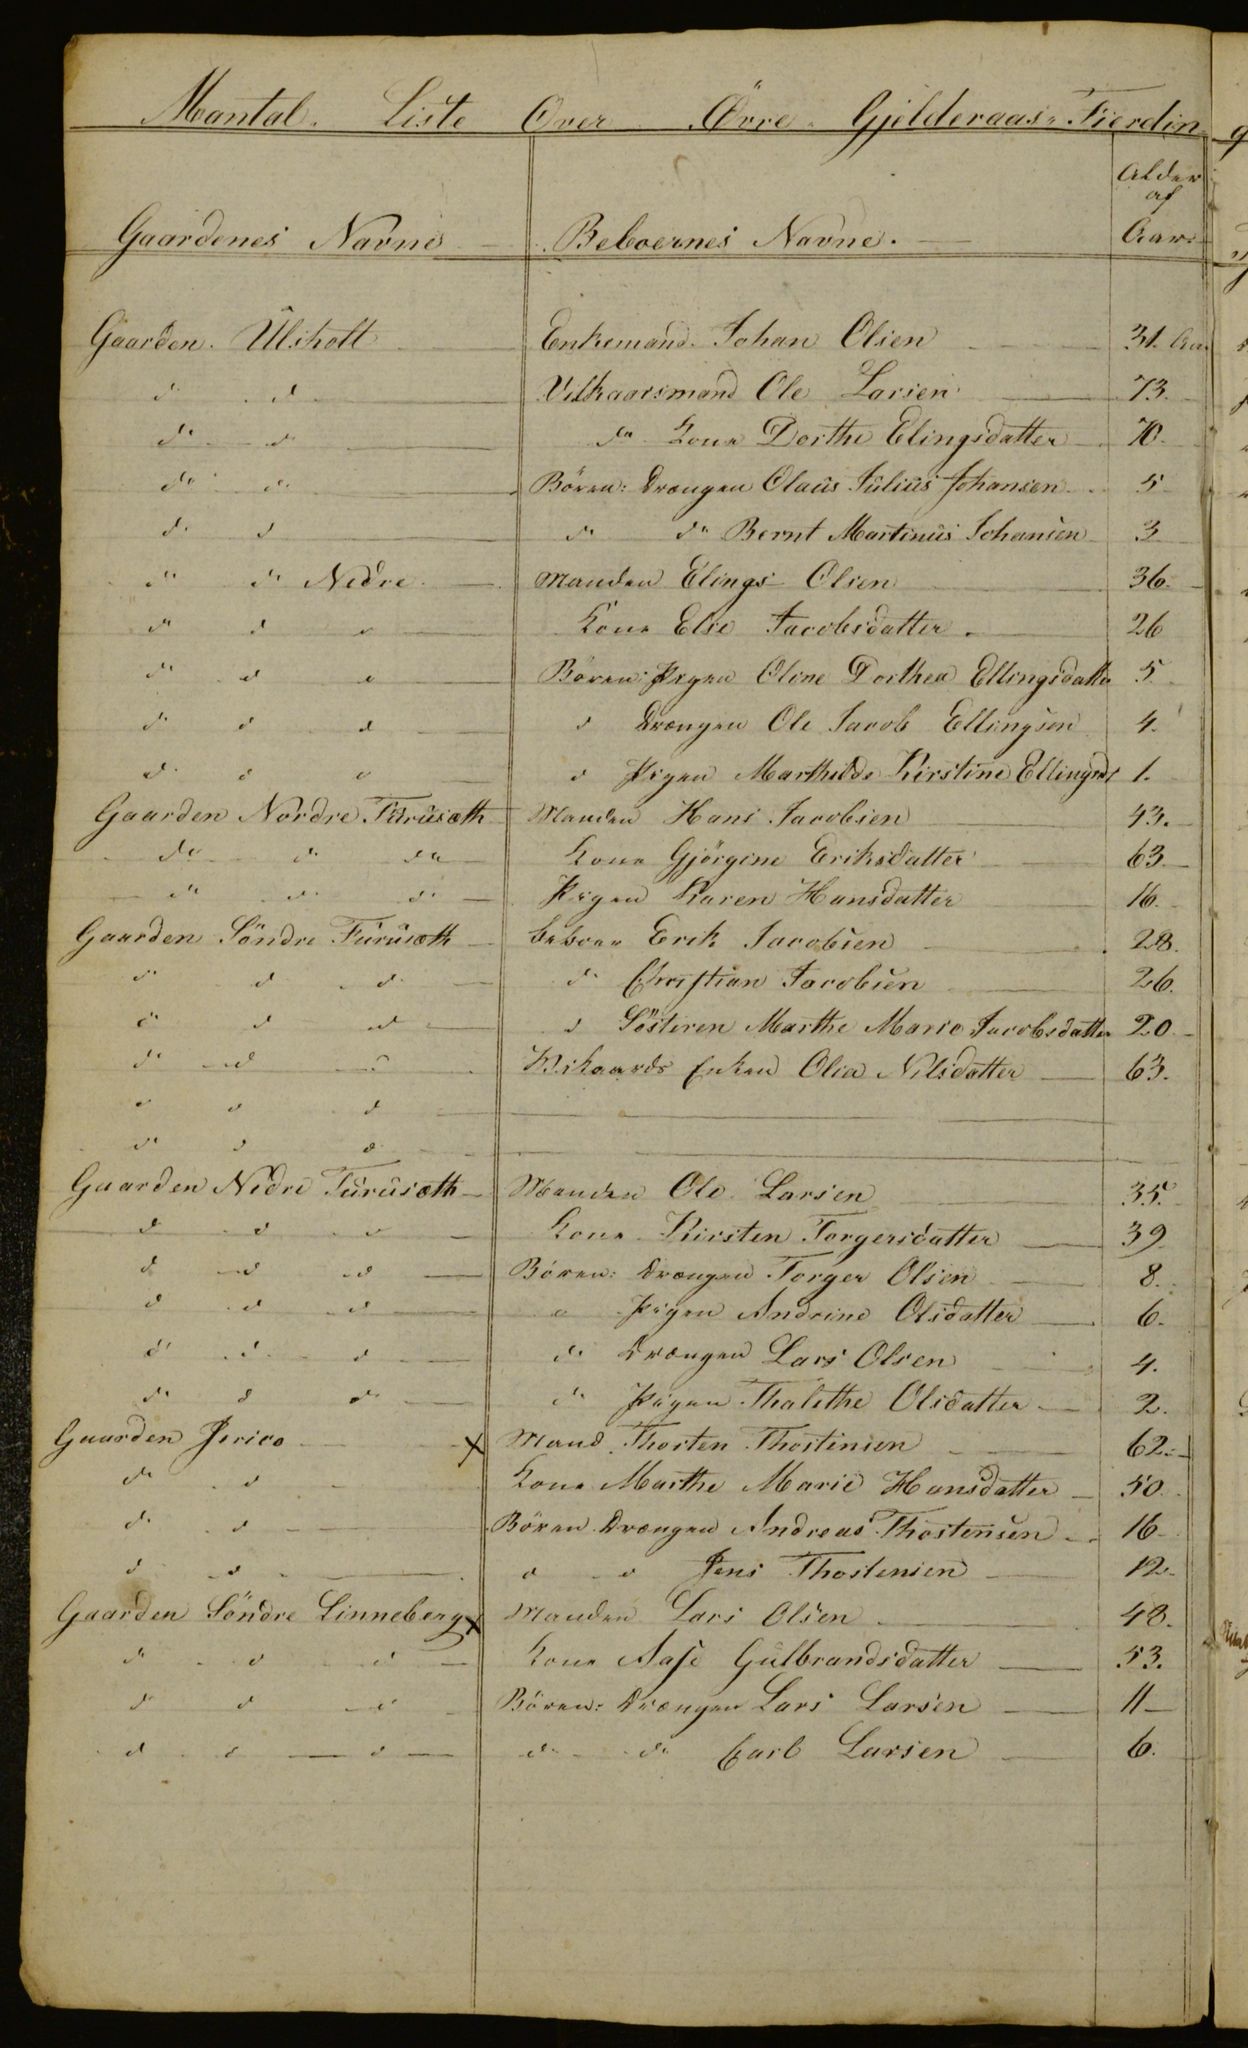 Mantal. Liste Over Övre Gjelderaas Fierdin
Alder
af
Gaardenes Navne Beboernes Navne. Aar
Gaarden Ulsholt Enkemand Johan Olsen 31 Aar
d d Vilkaarsmand Ole Larsen 73
do d do Kone Dorthe Elingsdatter 70
do d. Bören: Drængen Olaus Julius Johansen 5
d. d do do Bernt Martinus Johansen 3
do do Nedre Manden Elings Olsen 36
d d d Kone Else Jacobsdatter 26
d d d Bören: Pigen Oline Dorthea Ellingsdatte 5
d d d d Drængen Ole Jacob Ellingsen 4
d d d d Pigen Marthilde Kirstine Ellingsd 1
Gaarden Nordre Furusæth Manden Hans Jacobsen 43
do do do Kone Gjörgine Eriksdatter 63
do do do Pigen Karen Hansdatter 16
Gaarden Söndre Furusæth beboer Erik Jacobsen 28
d d d do Christian Jacobsen 26
d d d d Sösteren Marthe Marie Jacobsdatter 20
d d d Enken Olia Nilsdatter 63
d d d
d d d
Gaarden Nedre Furusæth Manden Ole Larsen 35
d d d Kone Kirsten Torgersdatter 39
d d d Bören: Drængen Torger Olsen 8
d d d d Pigen Andrine Olsdatter 6
d d d do Drængen Lars Olsen 4
d d d do Pigen Thalethe Olsdatter 2
Gaarden Jerico x Mand Thosten Thostensen 62
do d Kone Marthe Marie Hansdatter 50
d. d Bören Drængen Andreas Thostensen 16
d d d d Jens Thostensen 12
Gaarden Söndre Linneberg x Manden Lars Olsen 48
d d d Kone Aase Gulbrandsdatter 53
d d d Börne: Drængen Lars Larsen 11
d d d do do Carl Larsen 6